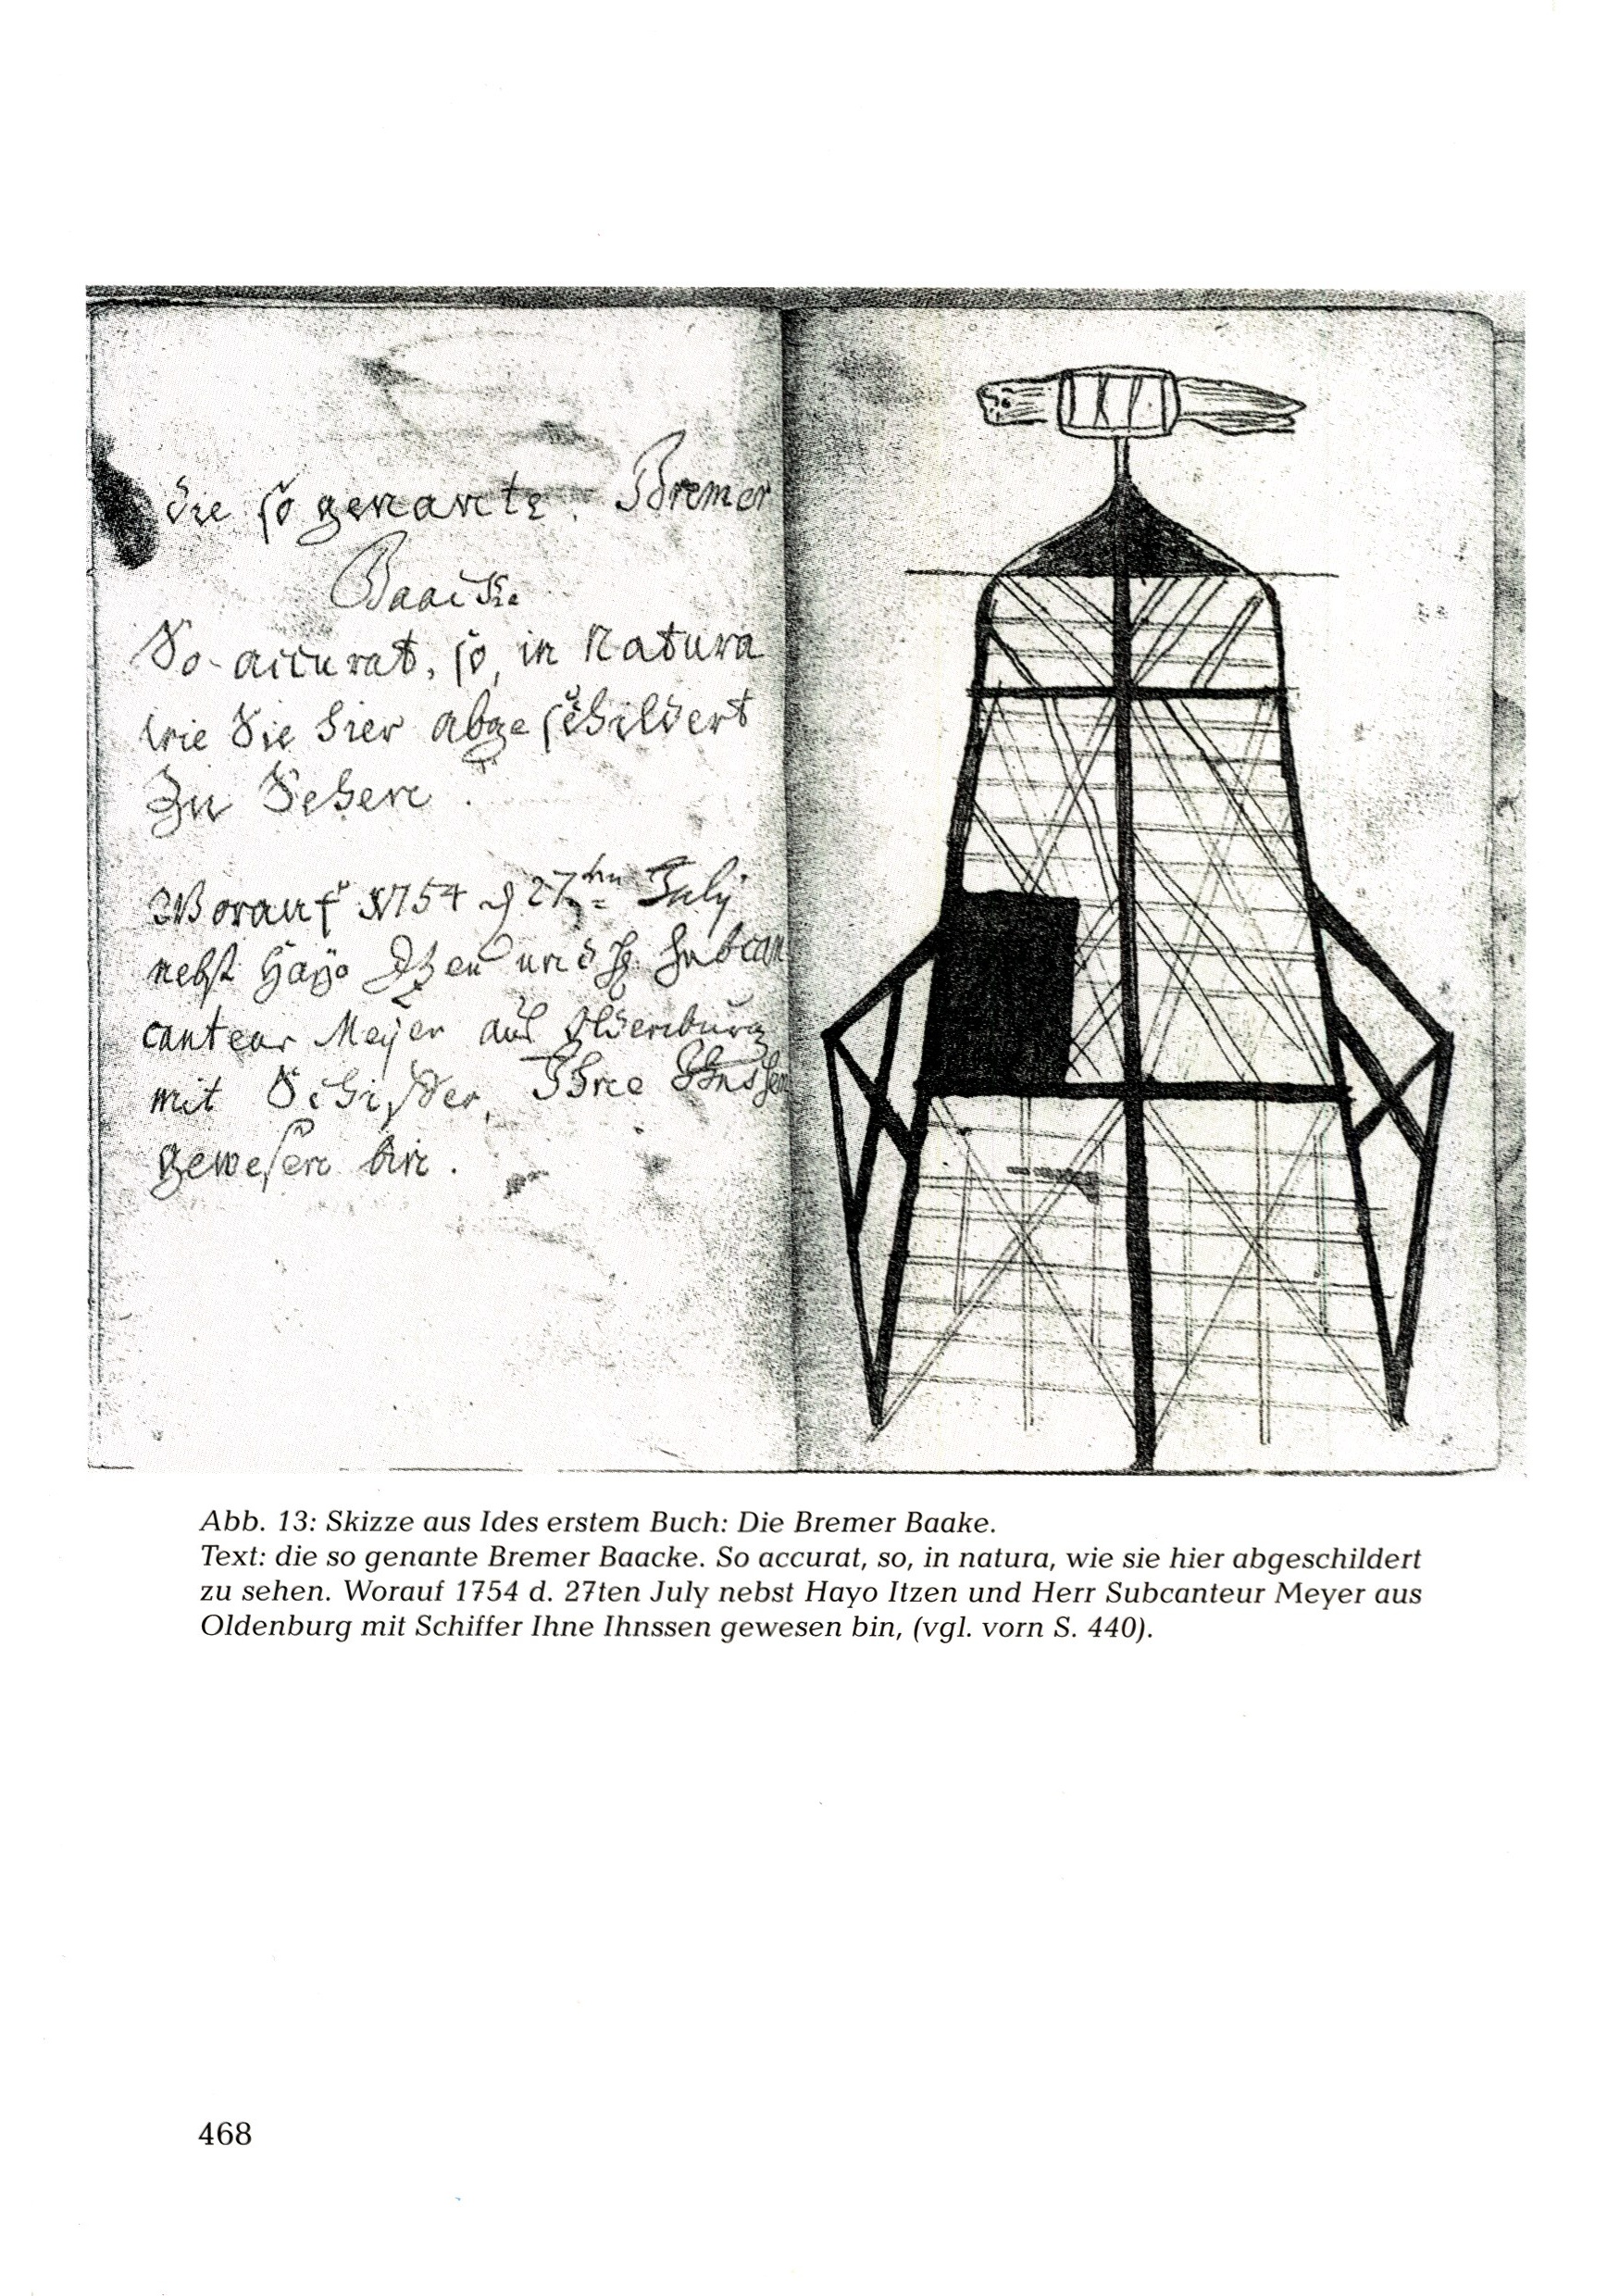 die so genante. Bremer
Baacke
So accurat, so, in Natura
wie Sie hier abgeschildert
Zu Sehen.
Worauf 1754 d 27ten July
nebst Hayo Itzen und H. Subcan
canteur Meyer aus Oldenburg
mit Schiffer, Ihne Ihnssen
gewesen bin.
Abb. 13: Skizze aus Ides erstem Buch: Die Bremer Baake.
Text: die so genante Bremer Baacke. So accurat, so, in natura, wie sie hier abgeschildert
zu sehen. Worauf 1754 d. 27ten July nebst Hayo Itzen und Herr Subcanteur Meyer aus
Oldenburg mit Schiffer Ihne Ihnssen gewesen bin, (vgl. vorn S. 440).
468